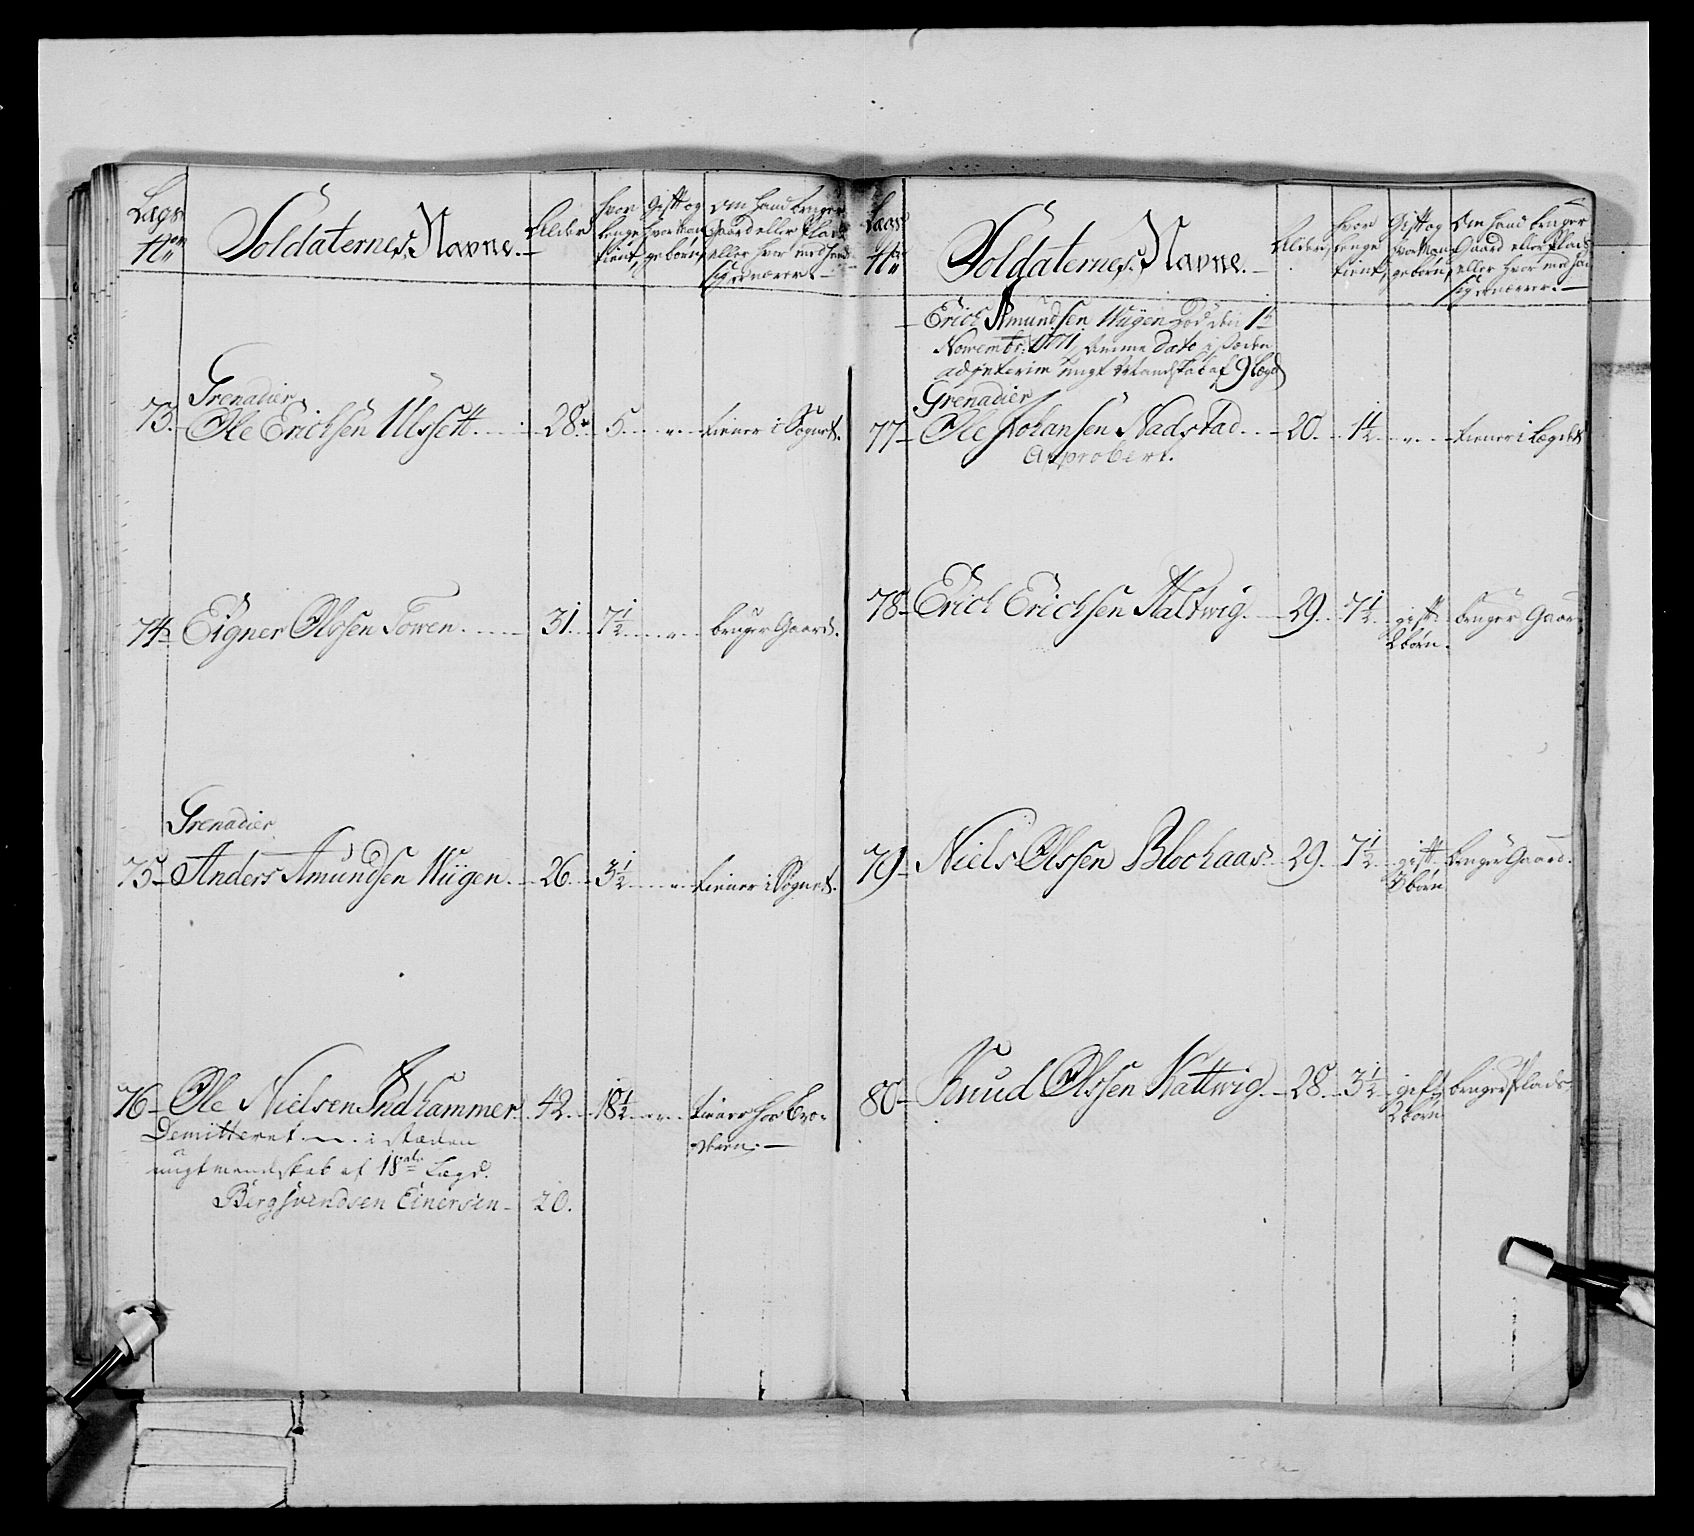 Lægs
No
Soldaternes Navne.
Alder
hvor
lenge
tient,
Gift og
hvor Man
ge børn,
Om hand bruger
Gaard eller Plads
eller hvor med hand
sig ernærer.
Grenadier
73. Ole Erichsen Ulssett 28. 5. " tiener i Sognet.
74 Eigner Olssen Towen 31 7½ " bruger Gaard.
Grenadier
75 Anders Amundsen Wügen 26 3½ " tiener i Sognet.
76 Ole Nielsen Indhammer 42. 18½ " tiener hos Bro-
deren.
Demitteret i stæden
nygt mandskab af 18de Lægd.
Bergsvendsen Einersen 20.
Laegs
No
Soldaternes Navne.
Alder,
Hvor
lenge
tient,
Gift og
hvor Man
ge børn,
Om Hand bruger
Gaard eller Plads
eller hvor med han
sig ernærer.
Erich Amundsen Wügen død den 1te
Novembr: 1771, Samme Dato i stæden
nygt Mandskab af 9 Lægd
Grenadier
77 Ole Johansen Nadstad 20. 1½ " tiener i Lægdet
Approbert.
78 Erich Erichsen Kaltwig 29. 7½ gift bruger Gaard
2 børn.
79 Niels Olssen Blochaas 29. 7½ gift bruger Gaard.
3 børn
80 Knud Olssen Kattwig 28. 3½ gift bruger Plads
2 børn